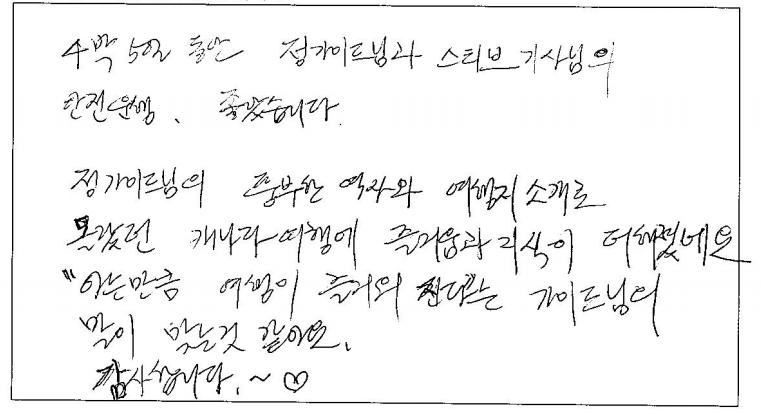 4박 5일 동안 정가이드님과 스티브 기사님의
안전운행, 좋았습니다.
정가이드님의 풍부한 역사와 여행지 소개로
몰랐던 캐나다 여행에 즐거움과 지식이 더해졌네요
"아는만큼 여행이 즐거워 진다"는 가이드님의
말이 맞는것 같아요.
감사합니다.~♡